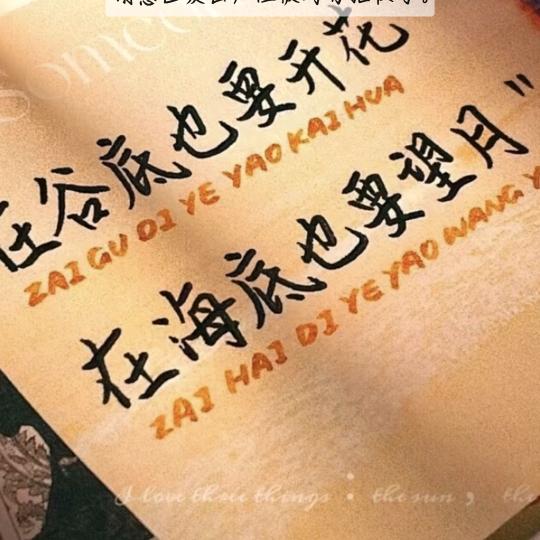 Some
在谷底也要开花
ZAI GU DI YE YAO KAI HUA
在海底也要望月"
ZAI HAI DI YE YAO WANG Y
I love three things : the sun , the